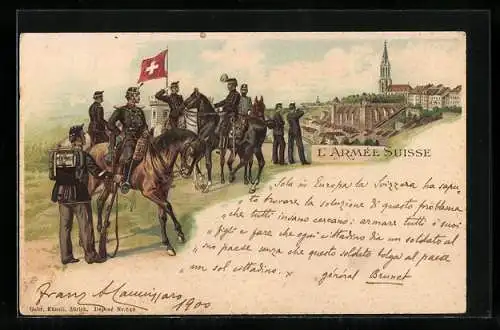 L'ARMÉE SUISSE
Sola in Europa la Svizzera ha sapu-
„ to trovare la soluzione di questo problema
„ che tutti invano cercano: armare tutti i suoi
„ figli e fare che ogni cittadino dia un soldato al
„ suo paese senza che questo soldato tolga al paese
„ un sol cittadino. „
général Brunet
Franz
1900
Gebr. Künzli, Zürich.